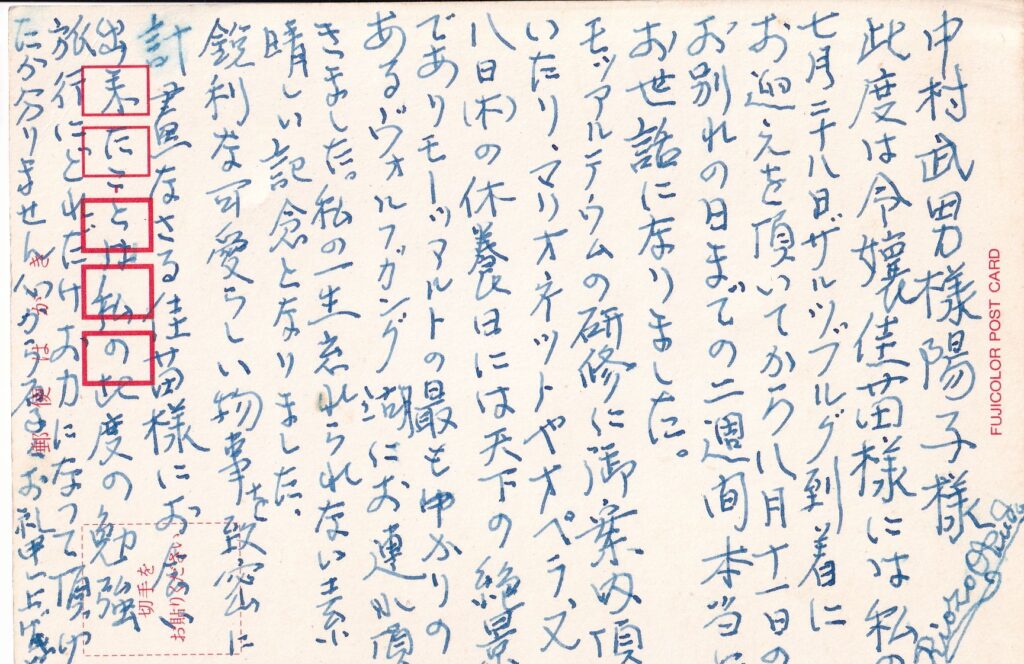 中村武男様陽子様
此度は令嬢佳苗様には私の
七月二十八日ザルツブルグ到着に
お迎えを頂いてから八月十一日の
お別れの日までの二週間本当に
お世話になりました。
モツアルテウムの研修に御案内頂
いたり、マリオネットやオペラ、又
八日(木)の休養日には天下の絶景
でありモーツアルトの最も中かりの
あるヴォルフガング湖にお連れ頂
きました。私の一生忘れられない素
晴しい記念となりました。
鋭利な可愛らしい物事を致密に
計畫なさる佳苗様にお会い
出来たことは私の此度の勉強
旅行にどれだけお力になって頂け
たか分りません 心から厚くお礼申上げます
FUJICOLOR POST CARD
郵便はがき
切手を
お貼りください